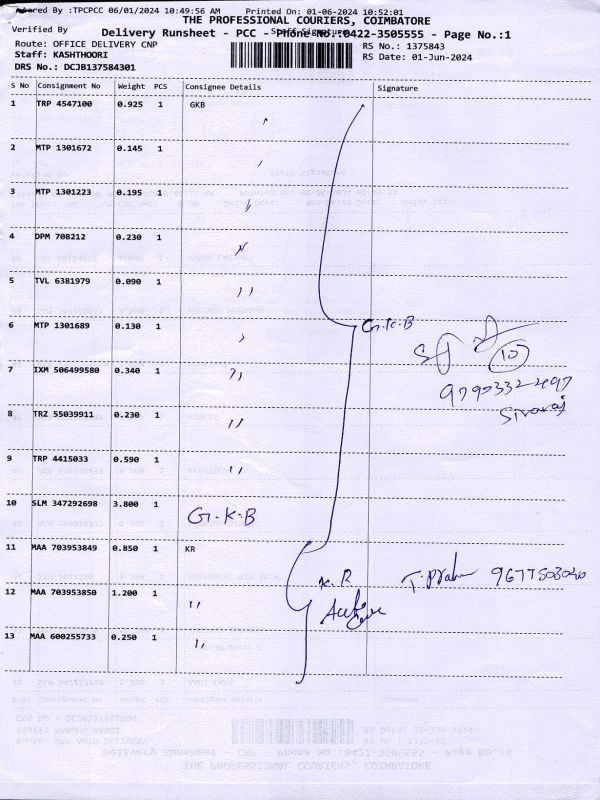 ered By :TPCPCC 06/01/2024 10:49:56 AM Printed On: 01-06-2024 10:52:01
THE PROFESSIONAL COURIERS, COIMBATORE
Verified By
Delivery Runsheet - PCC - Phone No.:0422-3505555 - Page No.:1
Route: OFFICE DELIVERY CNP RS No.: 1375843
Staff: KASHTHOORI RS Date: 01-Jun-2024
DRS No.: DCJB137584301
S No Consignment No Weight PCS Consignee Details Signature
1 TRP 4547100 0.925 1 GKB
2 MTP 1301672 0.145 1
3 MTP 1301223 0.195 1 "
4 DPM 708212 0.230 1 "
5 TVL 6381979 0.090 1 "
6 MTP 1301689 0.130 1 G.K.B
7 IXM 506499580 0.340 1 " 10
8 TRZ 55039911 0.230 1 " Sivaraj
9 TRP 4415033 0.590 1 "
10 SLM 347292698 3.800 1 G.K.B
11 MAA 703953849 0.850 1 KR
12 MAA 703953850 1.200 1 " K.R
13 MAA 600255733 0.250 1 "